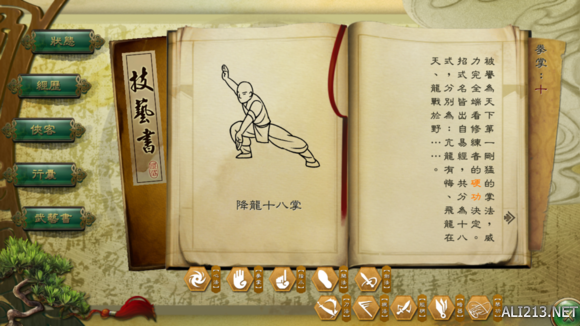 狀態
經歷
俠客
行囊
技藝書
技藝書
降龍十八掌
拳掌：十
被譽為天下第一剛猛的掌法，威
力完全端看修練者的硬功決定。
招式名皆出自易經，共分為十八
式，分別為：亢龍有悔、飛龍在
天、龍戰於野……。
ALI213.NET